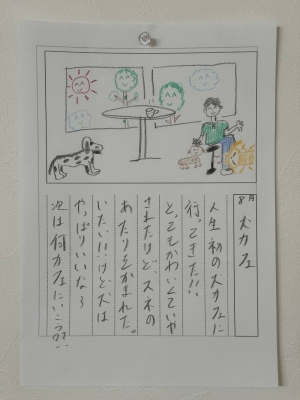 8月
犬カフェ
人生初の犬カフェに
行ってきた!!
とってもかわいくていや
されたけど、スネの
あたりをかまれた。
いたい!!けど犬は
やっぱりいいなぁ
次は何カフェにいこうか